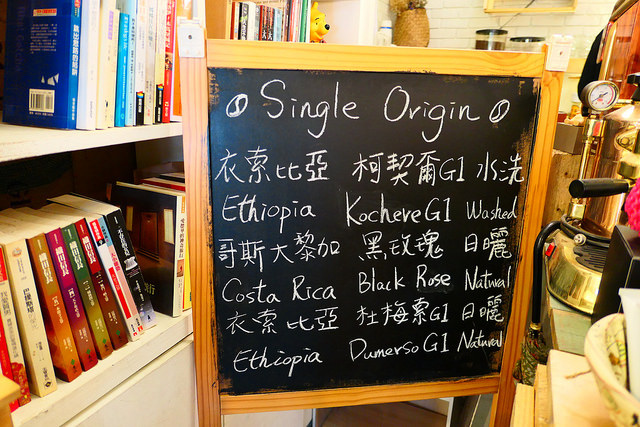 Single Origin
衣索比亞 柯契爾G1 水洗
Ethiopia Kochere G1 Washed
哥斯大黎加 黑玫瑰 日曬
Costa Rica Black Rose Natural
衣索比亞 杜梅索G1 日曬
Ethiopia Dumerso G1 Natural